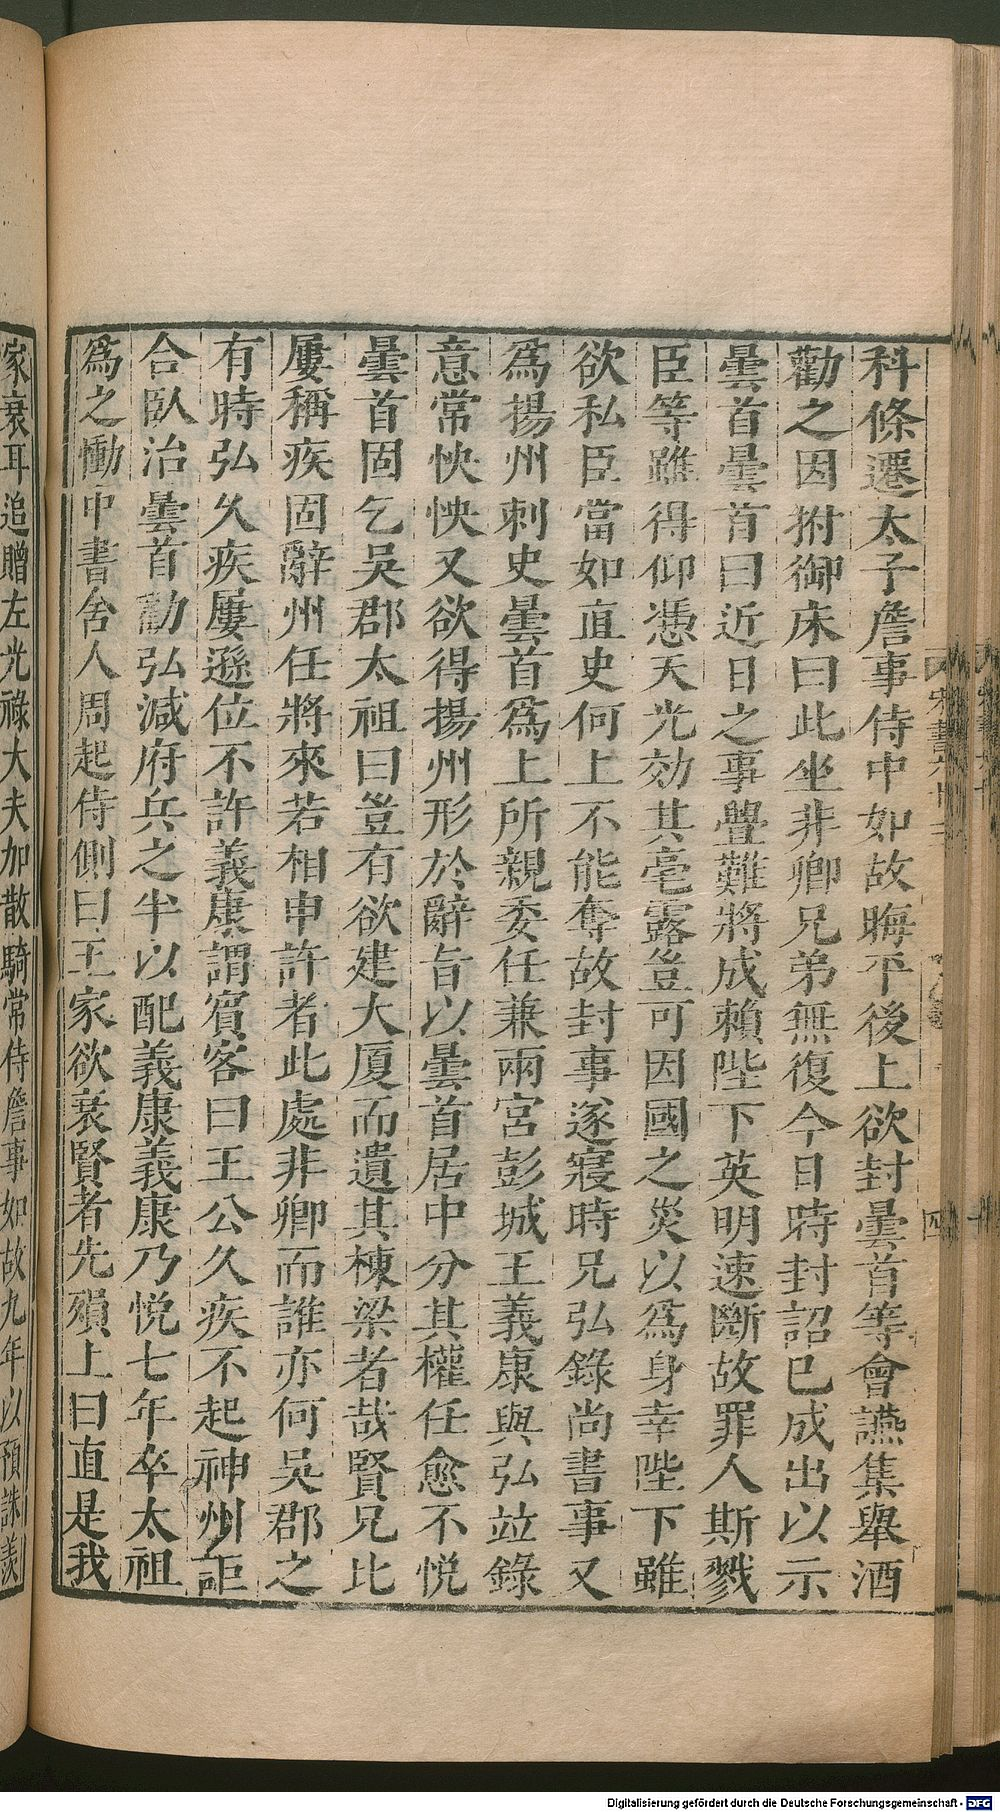 科條遷太子詹事侍中如故晦平後上欲封曇首等會讌集舉酒
勸之因拊御床曰此坐非卿兄弟無復今日時封詔已成出以示
曇首曇首曰近日之事釁難將成賴陛下英明速斷故罪人斯戮
臣等雖得仰憑天光効其毫露豈可因國之災以爲身幸陛下雖
欲私臣當如直史何上不能奪故封事遂寢時兄弘錄尚書事又
爲揚州刺史曇首爲上所親委任兼兩宮彭城王義康與弘竝錄
意常怏怏又欲得揚州形於辭旨以曇首居中分其權任愈不悅
曇首固乞吳郡太祖曰豈有欲建大厦而遺其棟梁者哉賢兄比
屢稱疾固辭州任將來若相申許者此處非卿而誰亦何吳郡之
有時弘久疾屢遜位不許義康謂賓客曰王公久疾不起神州詎
合臥治曇首勸弘減府兵之半以配義康義康乃悅七年卒太祖
爲之慟中書舍人周起侍側曰王家欲衰賢者先殞上曰直是我
家衰耳追贈左光祿大夫加散騎常侍詹事如故九年以預誅羨
Digitalisierung gefördert durch die Deutsche Forschungsgemeinschaft - DFG